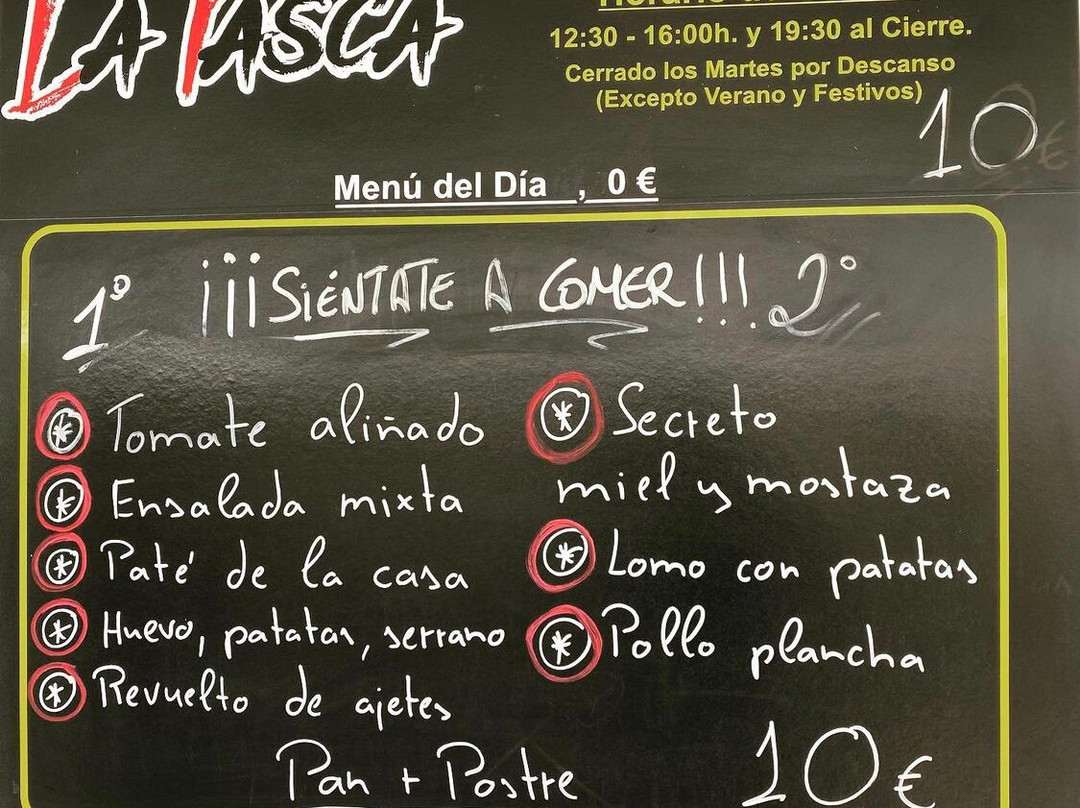 LA TASCA
12:30 - 16:00h. y 19:30 al Cierre.
Cerrado los Martes por Descanso
(Excepto Verano y Festivos)
10 €
Menú del Día , 0 €
1º ¡¡¡SIÉNTATE A COMER!!! 2º
* Tomate aliñado
* Ensalada mixta
* Paté de la casa
* Huevo, patatas, serrano
* Revuelto de ajetes
* Secreto
miel y mostaza
* Lomo con patatas
* Pollo plancha
Pan + Postre 10€